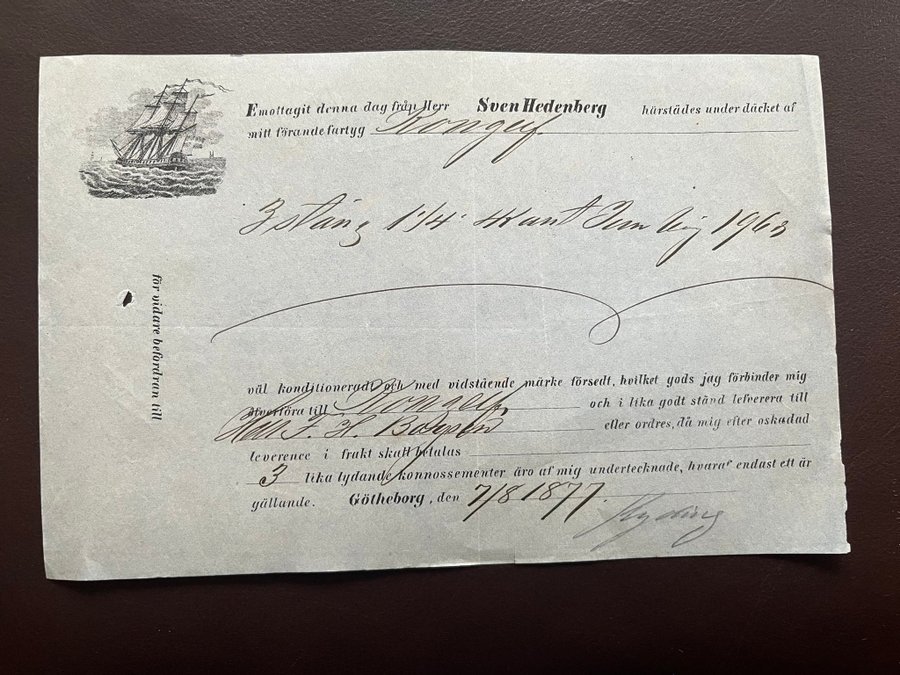 Emottagit denna dag från Herr Sven Hedenberg härstädes under däcket af
mitt förande fartyg
3 stång 1 1/4 4Kant
för vidare befordran till
väl konditioneradt och med vidstående märke försedt, hvilket gods jag förbinder mig
öfverföra till och i lika godt stånd lefverera till
Herr F. H. eller ordres, då mig efter oskadad
leverence i frakt skall betalas
3 lika lydande konnossementer äro af mig undertecknade, hvaraf endast ett är
gällande. Götheborg, den 7/8 1877.